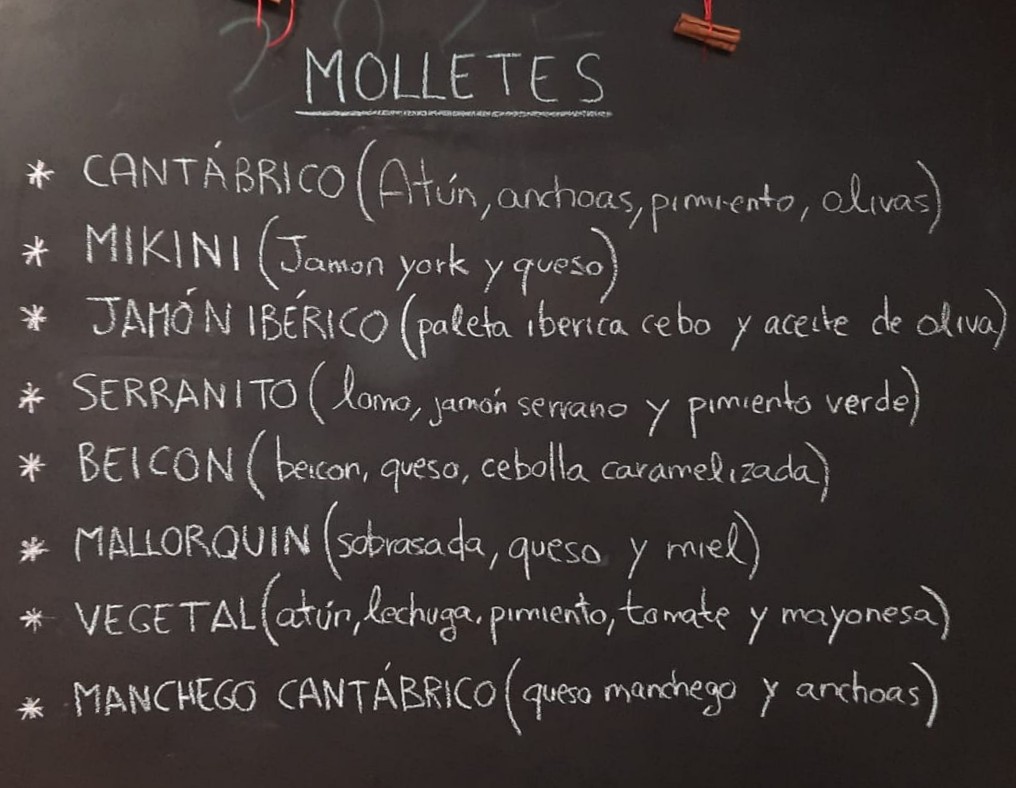 MOLLETES
* CANTÁBRICO (Atún, anchoas, pimiento, olivas)
* MIKINI (Jamon york y queso)
* JAMÓN IBÉRICO (paleta iberica cebo y aceite de oliva)
* SERRANITO (lomo, jamón serrano y pimiento verde)
* BEICON (beicon, queso, cebolla caramelizada)
* MALLORQUIN (sobrasada, queso y miel)
* VEGETAL (atún, lechuga, pimiento, tomate y mayonesa)
* MANCHEGO CANTÁBRICO (queso manchego y anchoas)